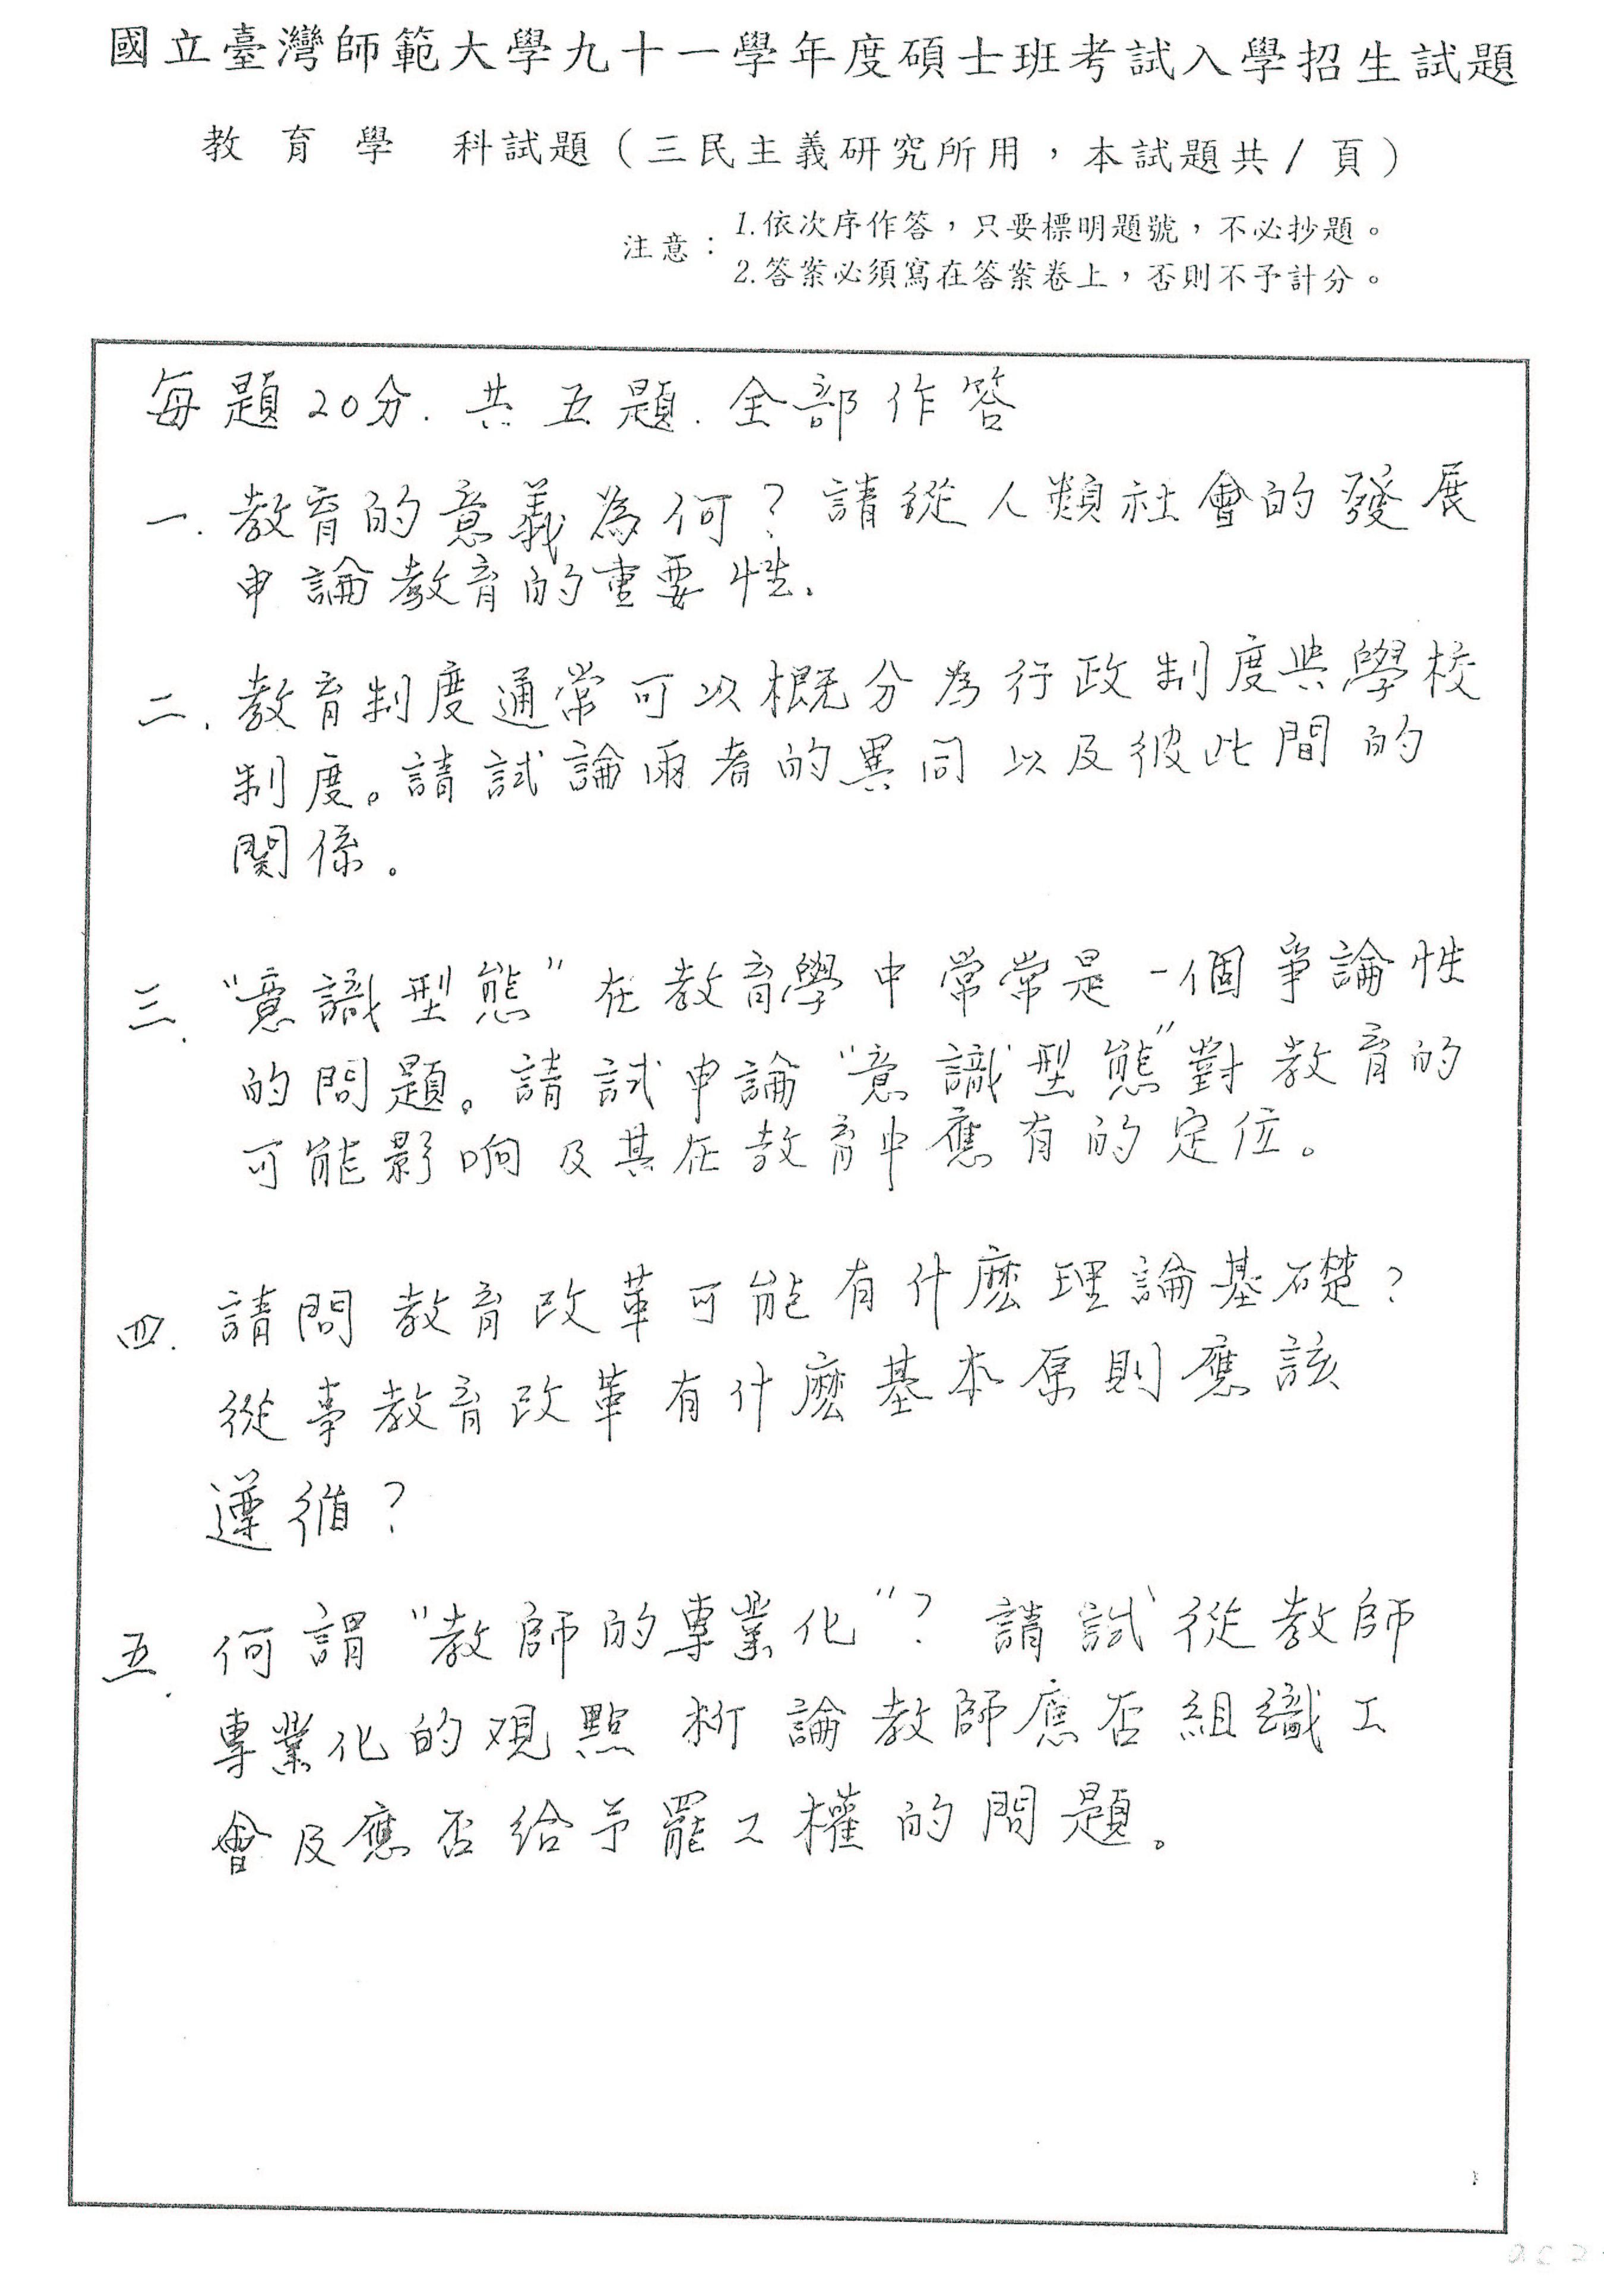 國立臺灣師範大學九十一學年度碩士班考試入學招生試題
教育學 科試題（三民主義研究所用，本試題共/頁）
注意：
1.依次序作答，只要標明題號，不必抄題。
2.答案必須寫在答案卷上，否則不予計分。
每題20分.共五題.全部作答
一.教育的意義為何？請從人類社會的發展
申論教育的重要性.
二.教育制度通常可以概分為行政制度與學校
制度。請試論兩者的異同以及彼此間的
關係。
三."意識型態"在教育學中常常是一個爭論性
的問題。請試申論"意識型態"對教育的
可能影响及其在教育中應有的定位。
四.請問教育改革可能有什麼理論基礎？
從事教育改革有什麼基本原則應該
遵循？
五.何謂"教師的專業化"？請試從教師
專業化的观點析論教師應否組織工
會及應否給予罷工權的問題。